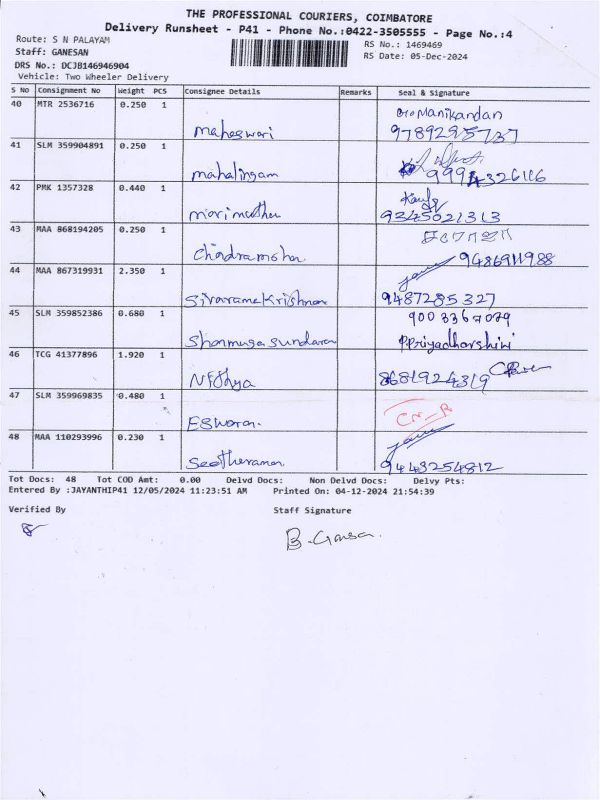 THE PROFESSIONAL COURIERS, COIMBATORE
Delivery Runsheet - P41 - Phone No.:0422-3505555 - Page No.:4
Route: S N PALAYAM
RS No.: 1469469
Staff: GANESAN
RS Date: 05-Dec-2024
DRS No.: DCJB146946904
Vehicle: Two Wheeler Delivery
S No Consignment No Weight PCS Consignee Details Remarks Seal & Signature
40 MTR 2536716 0.250 1 maheswari Manikandan
41 SLM 359904891 0.250 1 mahalingam
42 PMK 1357328 0.440 1 9345021313
43 MAA 868194205 0.250 1 9486911988
44 MAA 867319931 2.350 1 Sivaramakrishnan 9487285327
45 SLM 359852386 0.680 1 Shanmuga sundaram PPriyadharshini
46 TCG 41377896 1.920 1 Nithya 8681924319
47 SLM 359969835 0.480 1 Eswaran.
48 MAA 110293996 0.230 1 Seetheraman 9443254812
Tot Docs: 48 Tot COD Amt: 0.00 Delvd Docs: Non Delvd Docs: Delvy Pts:
Entered By :JAYANTHIP41 12/05/2024 11:23:51 AM Printed On: 04-12-2024 21:54:39
Verified By Staff Signature